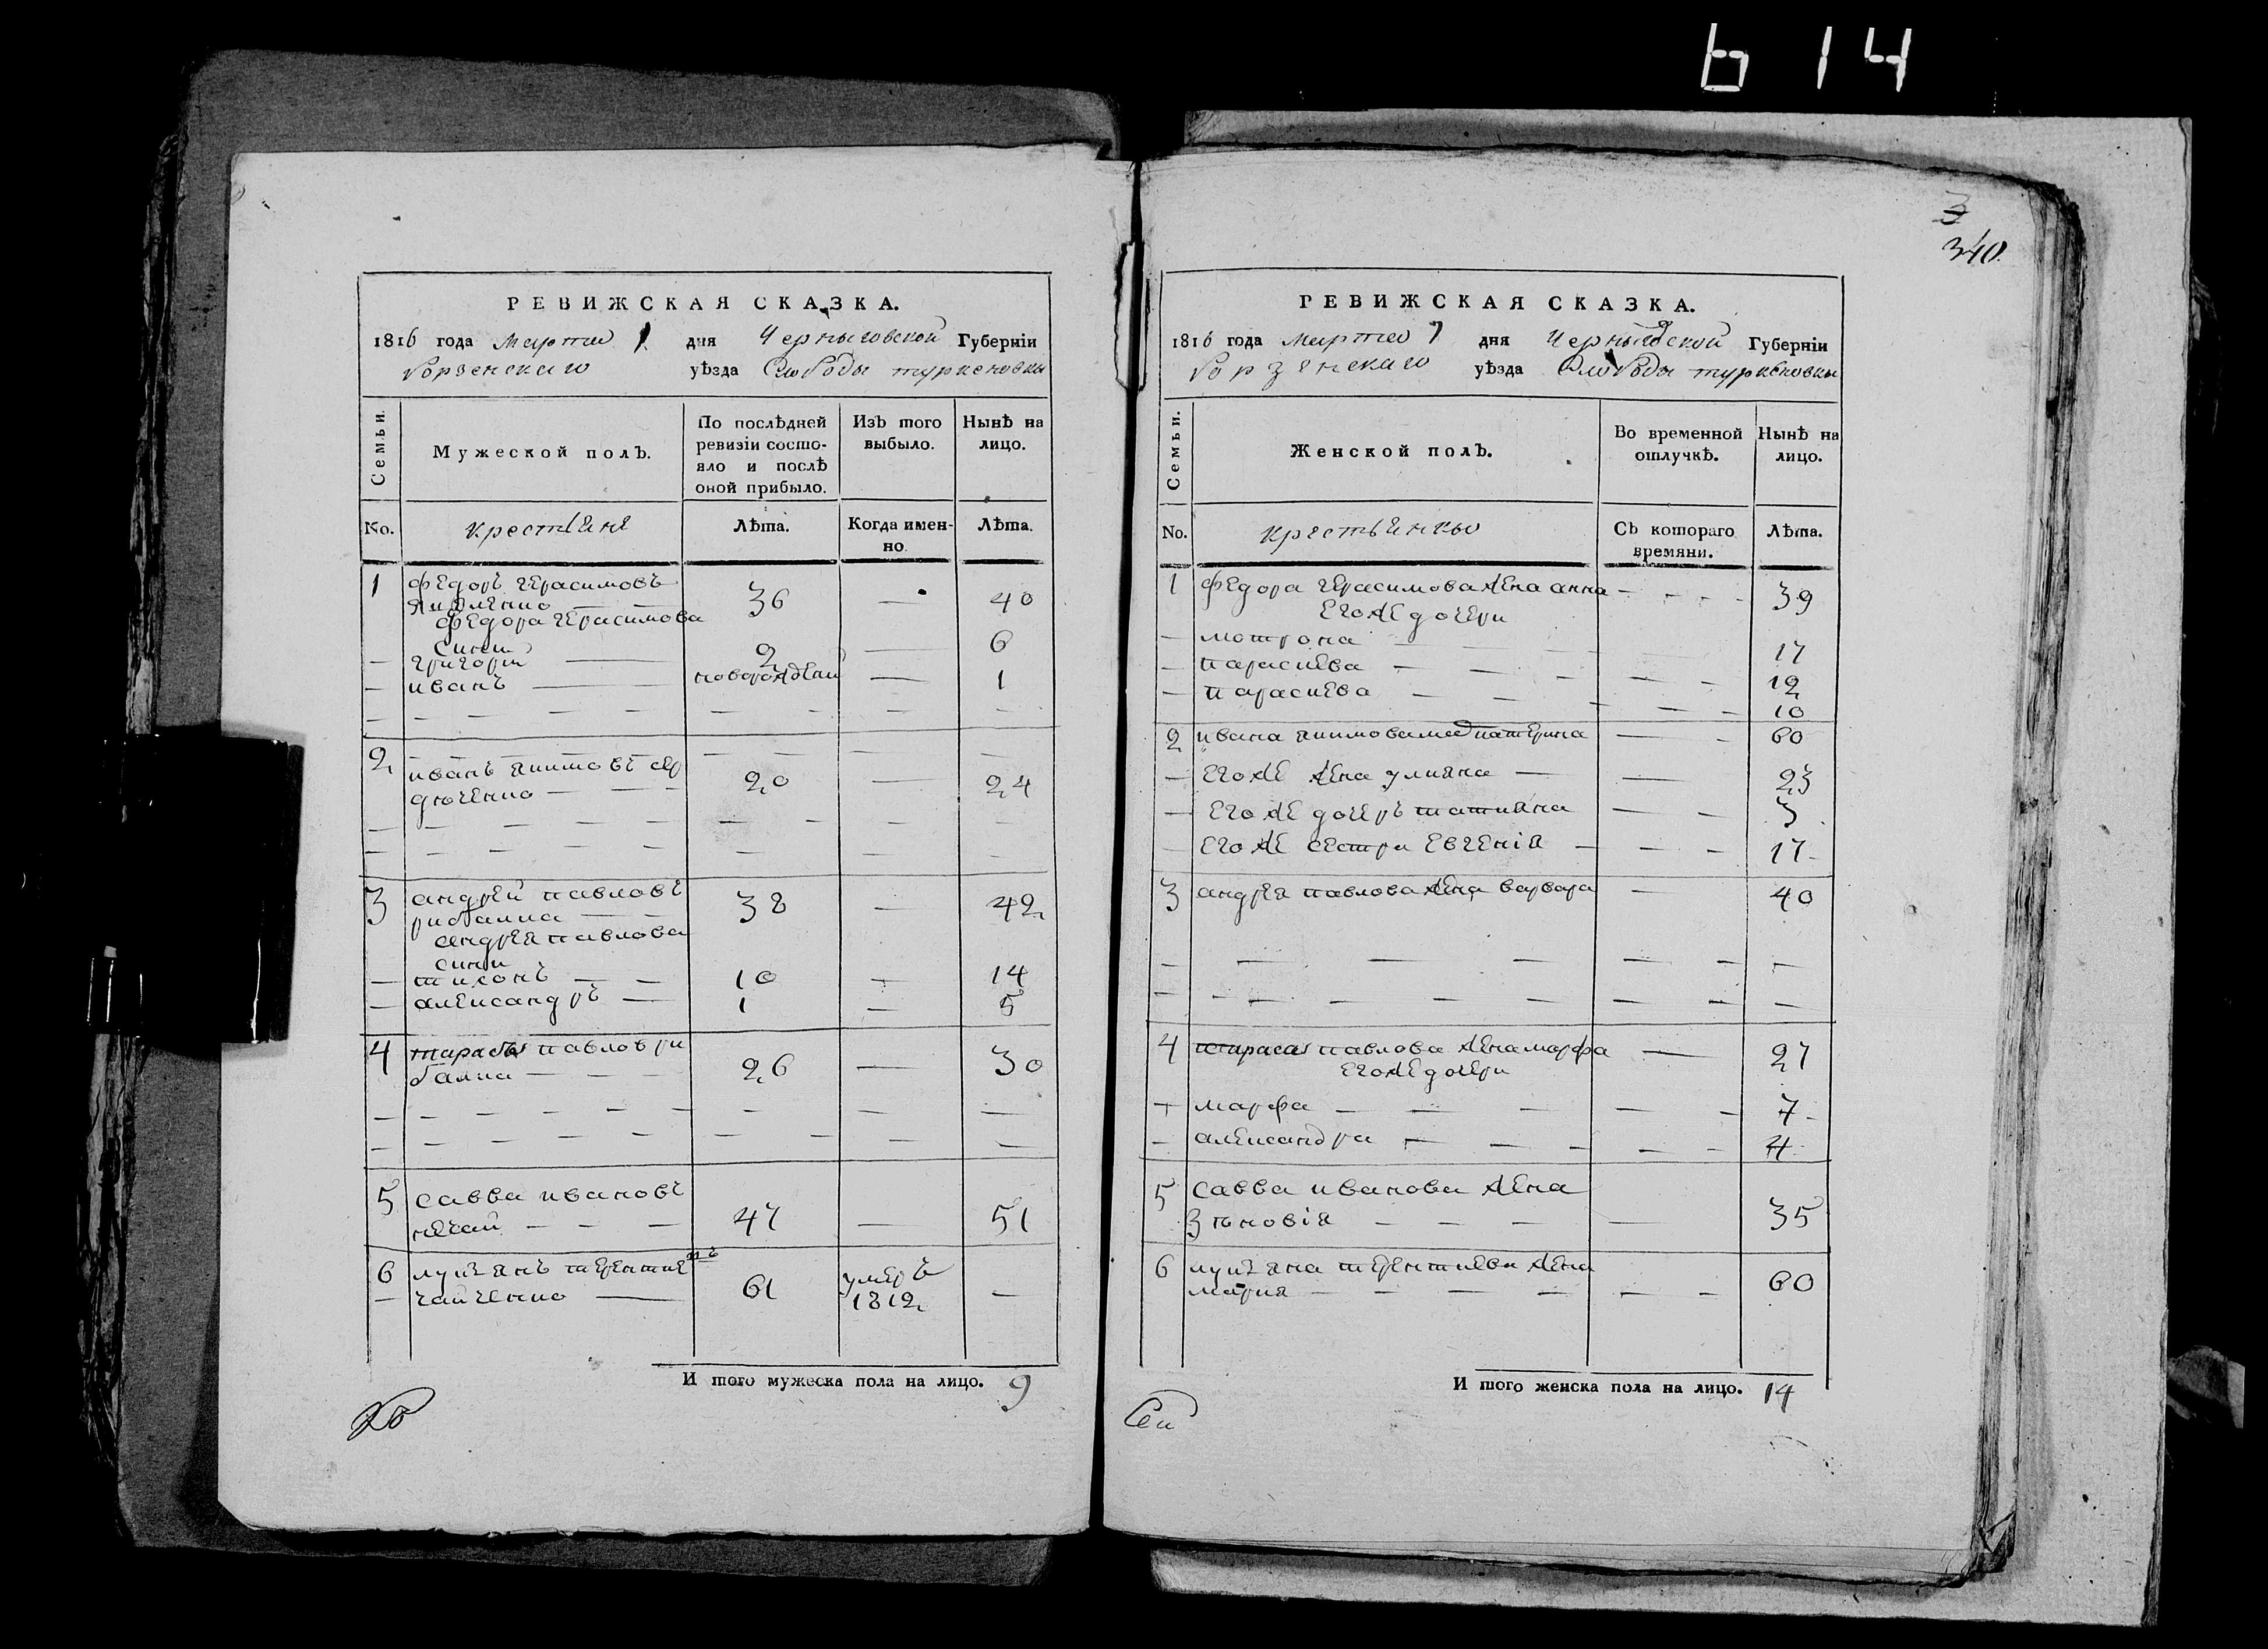 614
РЕВИЖСКАЯ СКАЗКА.
1816 года марта 1 дня Черныговской Губернiи
борзенскаго уѣзда Слободы туркеновки
Семьи.
Мужеской полЪ.
По послѣдней ревизiи состояло и послѣ оной прибыло.
ИзЪ того выбыло.
НынѢ на лицо.
No. крестьяне Лѣта. Когда именно. Лѣта.
1 федоръ герасимовъ
36 — 40
федора герасимова
сини
— григорий — 2 — 6
— иванъ — новорождений — 1
2 иванъ якимовъ сер
дюченко — 20 — 24
3 андрей павловъ
рибалка — 38 — 42
андрея павлова
сини
— тихонъ — 10 — 14
— александръ — 1 — 5
4 тарасъ павлов ри
балка — 26 — 30
5 савва ивановъ
нечай — 47 — 51
6 лукянъ терентиевъ
— гайченко — 61 умеръ 1812 —
И того мужеска пола на лицо. 9
3
340
РЕВИЖСКАЯ СКАЗКА.
1816 года марта 1 дня Черныговской Губернiи
борзенскаго уѣзда Слободы туркеновки
Семьи.
Женской полЪ.
Во временной отлучкѢ.
НынѢ на лицо.
No. крестьянки СЪ котораго времяни. Лѣта.
1 федора герасимова жена анна — 39
его же дочери
— мотрона — 17
— параскева — 12
— параскева — 10
2 ивана якимова мат катерина — 60
— его же жена улияна — 23
— его же дочерь татияна — 3
его же сестра евгенiя — 17
3 андрея павлова жена варвара — 40
4 тараса павлова жена марфа — 27
его же дочери
— марфа — 7
— александра — 4
5 савва иванова жена
зѣновiя — 35
6 лукяна терентиева жена
мария — 60
И того женска пола на лицо. 14